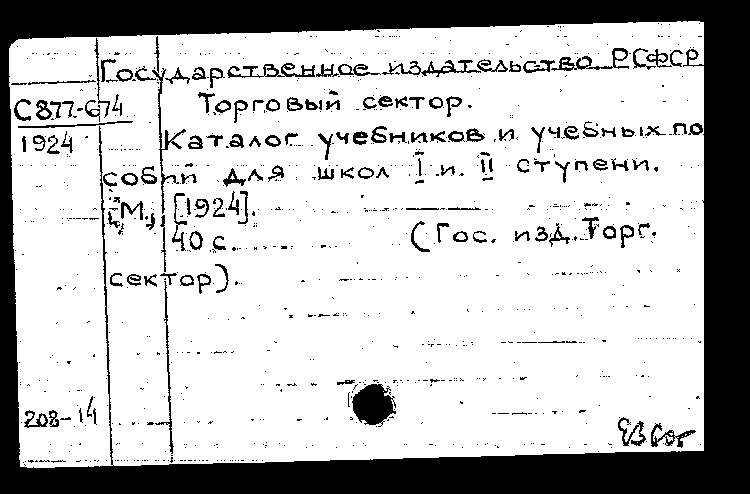 Государственное издательство РСФСР
С877-674 Торговый сектор.
1924 Каталог учебников и учебных по
собий для школ I и II ступени.
М., [1924].
40 с. (Гос. изд. Торг.
сектор).
208-14